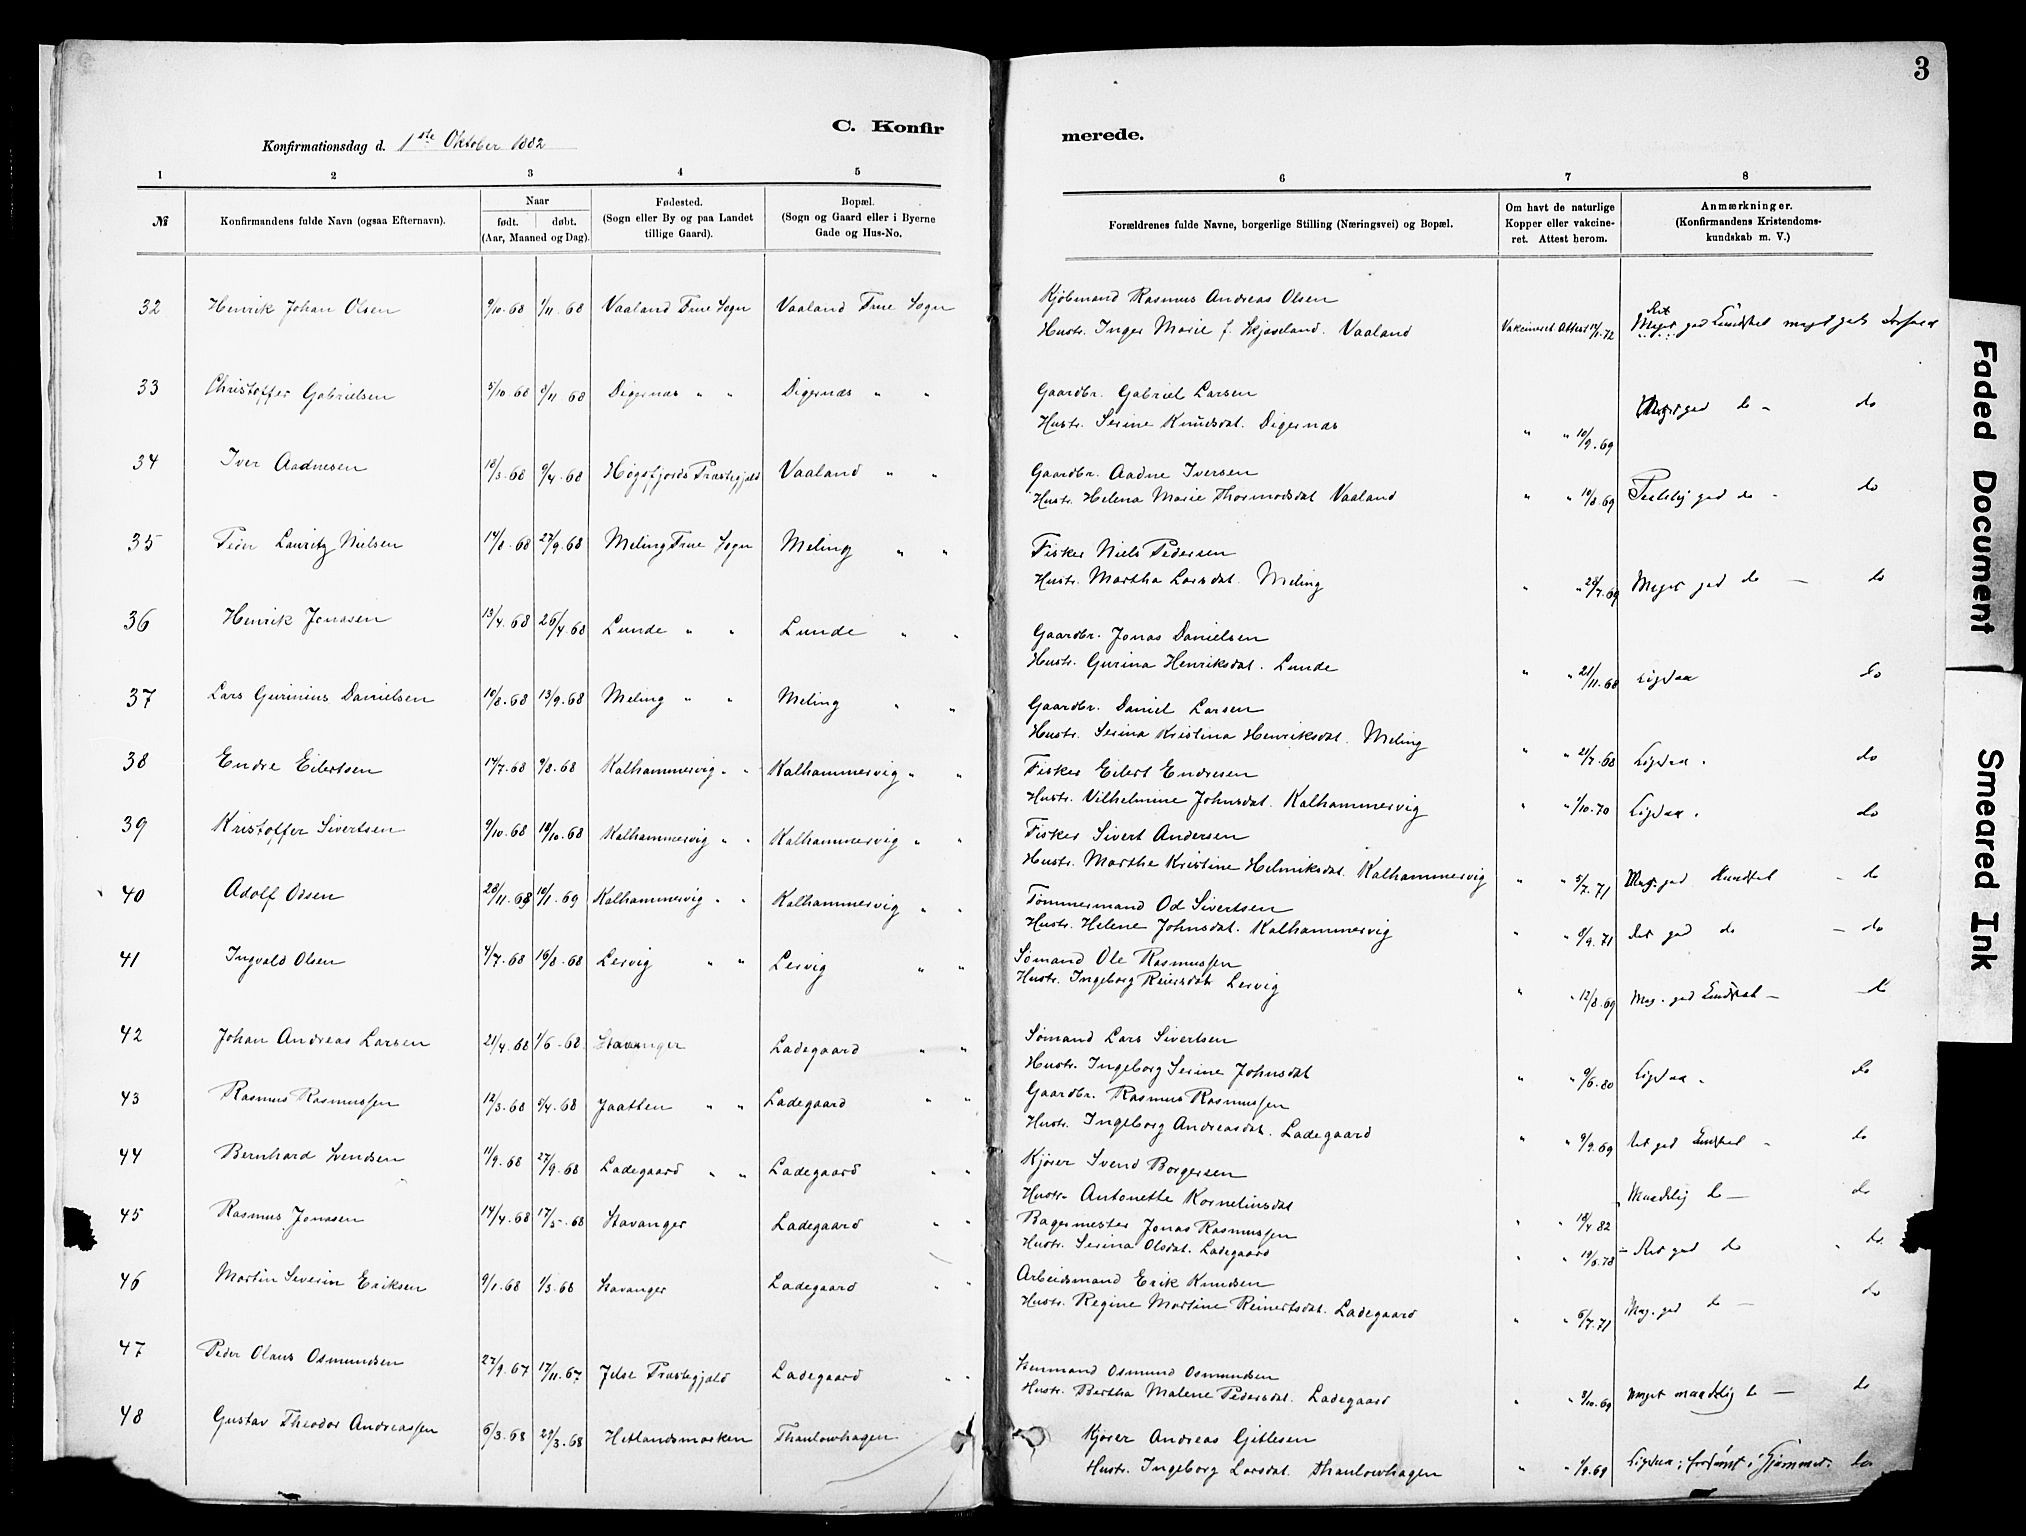 3
C. Konfir
merede.
Konfirmationsdag d. 1ste Oktober 1882
1 2 3 4 5 6 7 8
№
Konfirmandens fulde Navn (ogsaa Efternavn).
Naar
født. døbt.
(Aar, Maaned og Dag).
Fødested.
(Sogn eller By og paa Landet
tillige Gaard).
Bopæl.
(Sogn og Gaard eller i Byerne
Gade og Hus-No.
Forældrenes fulde Navne, borgerlige Stilling (Næringsvei) og Bopæl.
Om havt de naturlige
Kopper eller vakcine-
ret. Attest herom.
Anmærkninger.
(Konfirmandens Kristendoms-
kundskab m. V.)
32 Henrik Johan Olsen 9/10.68 1/11.68 Vaaland Frue Sogn Vaaland Frue Sogn Kjøbmand Rasmus Andreas Olsen
Hustr. Inger Marie f. Skjæseland. Vaaland Vakcineret Attest
33 Christoffer Gabrielsen 5/10.68 8/11.68 Digernæs " " Digernæs " " Gaardbr. Gabriel Larsen
Hustr. Serine Knudsdat. Digernæs " " 10/9.69 Meget god do - do
34 Iver Aadnesen 18/3.68 9/4.68 Høgsfjords Præstegjæld Vaaland " " Gaardbr. Aadne Iversen
Hustr. Helena Marie Thormodsdat Vaaland " " 10/8.69 god do - do
35 Peder Lauritz Nielsen 14/8.68 27/9.68 Meling Frue Sogn Meling " " Fisker Niels Pedersen
Hustr. Martha Larsdat. Meling " " 28/7.69 Meget god do - do
36 Henrik Jonasen 13/4.68 26/4.68 Lunde " " Lunde " " Gaardbr. Jonas Danielsen
Hustr. Gurina Henriksdat. Lunde " " 21/11.68 Ligesaa do
37 Lars Gurinius Danielsen 10/8.68 13/9.68 Meling " " Meling " " Gaardbr. Daniel Larsen
Hustr. Serina Kristina Henriksdat. Meling " " 21/7.68 Ligesaa . do
38 Endre Eilertsen 17/7.68 9/8.68 Kalhammervig " " Kalhammervig " " Fisker Eilert Endresen
Hustr. Vilhelmine Johnsdat. Kalhammervig " " 1/10.70 Ligesaa . do
39 Kristoffer Sivertsen 9/10.68 18/10.68 Kalhammervig " " Kalhammervig " " Fisker Sivert Andersen
Hustr. Martha Kristine Helmiksdat. Kalhammervig " " 5/7.71 Meg. god Kundskab - do
40 Adolf Odsen 28/11.68 10/1.69 Kalhammervig " " Kalhammervig " " Tømmermand Od Sivertsen
Hustr. Helene Johnsdat. Kalhammervig " " 9/9.71 Ret god do - do
41 Ingvald Olsen 4/7.68 16/8.68 Lervig " " Lervig " " Sømand Ole Rasmussen
Hustr. Ingeborg Reiersdat Lervig " " 12/8.69 Meg. god Kundskab - do
42 Johan Andreas Larsen 21/4.68 1/6-68 Stavanger Ladegaard " " Sømand Lars Sivertsen
Hustr. Ingeborg Serine Johnsdat " " 9/6.80 Ligesaa . do
43 Rasmus Rasmussen 12/3.68 5/4.68 Jaatten " " Ladegaard " " Gaardbr. Rasmus Rasmussen
Hustr. Ingeborg Andreasdat. Ladegaard " " 9/9.69 Ret god Kundskab - do
44 Bernhard Svendsen 11/9.68 27/9.68 Ladegaard " " Ladegaard " " Kjører Svend Borgersen
Hustr. Antonette Korneliusdat " " 18/4.82 Maadelig do - do
45 Rasmus Jonasen 14/4.68 17/5.68 Stavanger Ladegaard " " Bagermester Jonas Rasmussen
Hustr. Serina Olsdat. Ladegaard " " 19/6.78 - Ret god do " do
46 Martin Severin Eriksen 9/1.68 1/3.68 Stavanger Ladegaard " " Arbeidsmand Erik Knudsen
Hustr. Regine Martine Reinertsdat. Ladegaard " " 6/7.71 Meg. god do - do
47 Peder Olaus Osmundsen 27/9.67 17/11.67 Jelse Præstegjæld Ladegaard " " Osmund Osmundsen
Hustr. Bertha Malene Pedersdat. Ladegaard " " 9/10.69 Meget maadelig do - do
48 Gustav Theodor Andreassen 6/3.68 29/3.68 Hetlandsmarken Thaulowhagen Kjører Andreas Gitlesen
Hustr. Ingeborg Larsdat. Thaulowhagen " " 1/9.69 Ligesaa; do
Faded Document
Smeared Ink